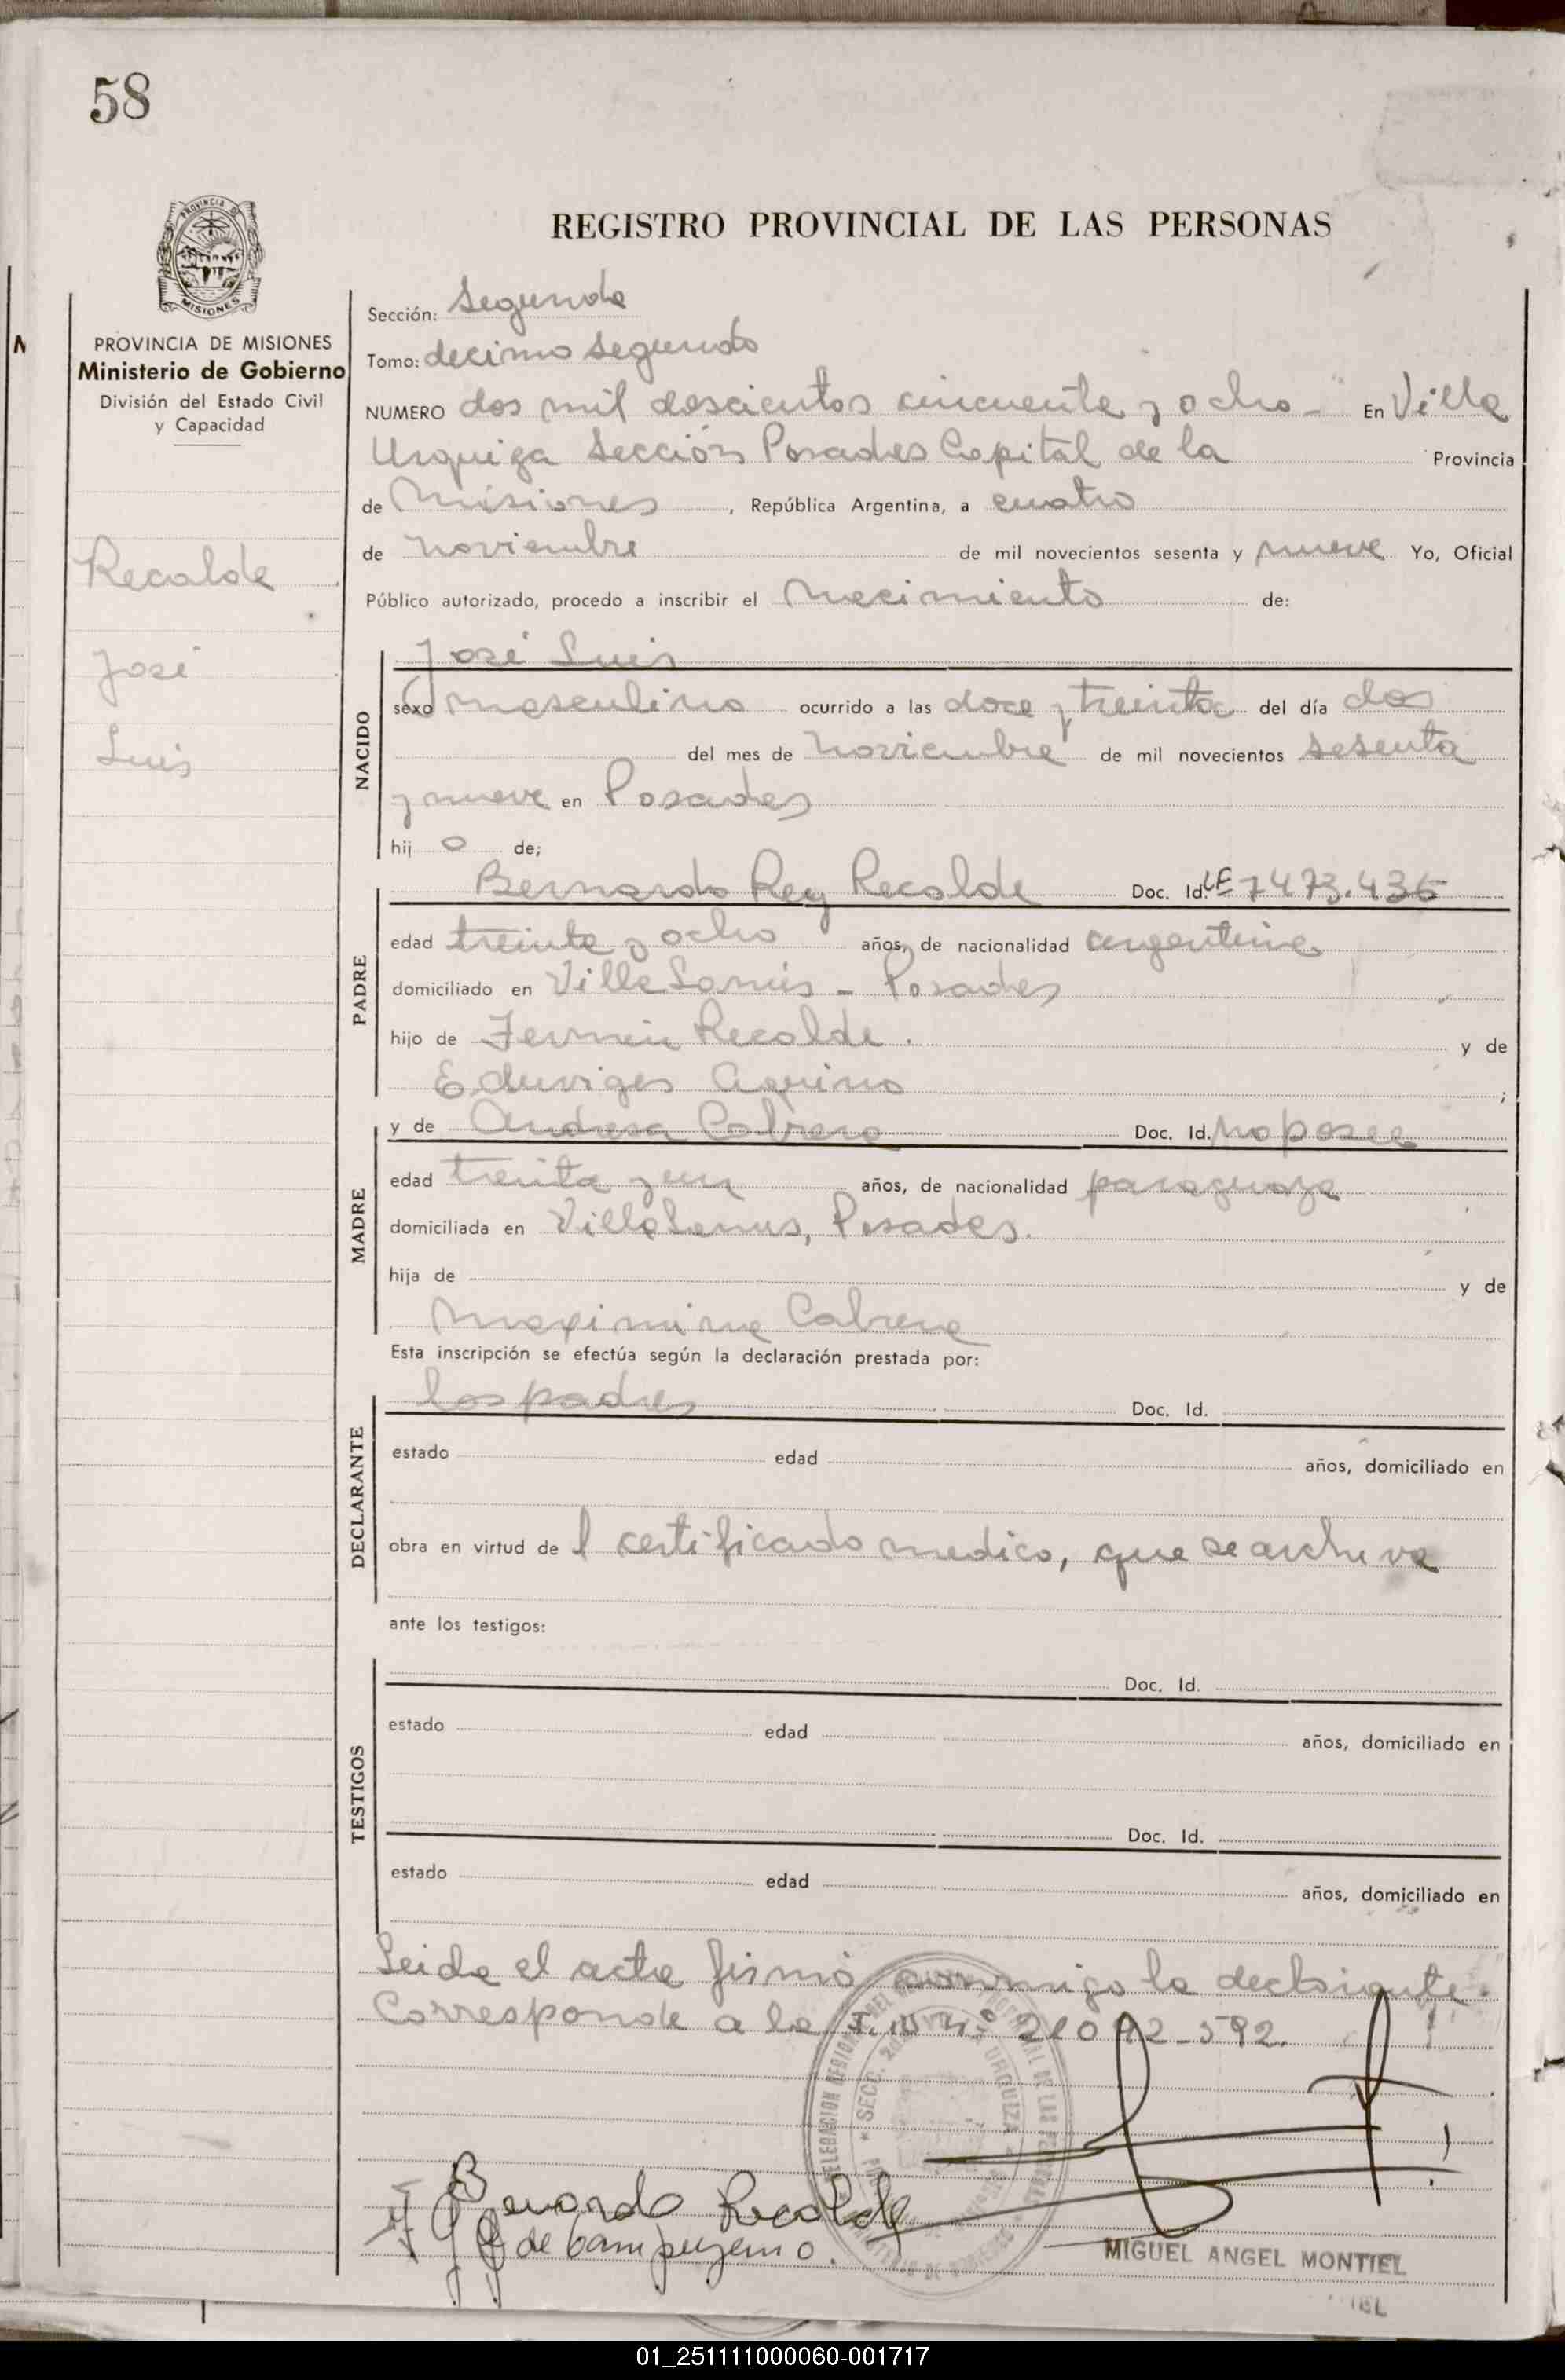 58
REGISTRO PROVINCIAL DE LAS PERSONAS
PROVINCIA DE
MISIONES
PROVINCIA DE MISIONES
Ministerio de Gobierno
División del Estado Civil
y Capacidad
Recalde
José
Luis
Sección: Segunda
Tomo: decimo segundo
NUMERO dos mil doscientos cincuenta y ocho - En Villa
Urquiza Sección Posadas Capital de la Provincia
de Misiones, República Argentina, a cuatro
de noviembre de mil novecientos sesenta y nueve Yo, Oficial
Público autorizado, procedo a inscribir el Nacimiento de:
José Luis
NACIDO
sexo masculino ocurrido a las doce y treinta del día dos
del mes de noviembre de mil novecientos sesenta
y nueve en Posadas
hij o de;
Bernardo Rey Recalde Doc. Id. LE 7473.436
PADRE
edad treinta y ocho años, de nacionalidad argentina
domiciliado en Villa Lanús - Posadas
hijo de Fermin Recalde. y de
Eduviges Aquino ;
y de Andresa Cabrera Doc. Id. no posee
MADRE
edad treinta y un años, de nacionalidad paraguaya
domiciliada en Villa Lanus, Posadas.
hija de y de
Maximina Cabrera
Esta inscripción se efectúa según la declaración prestada por:
los padres Doc. Id.
DECLARANTE
estado edad años, domiciliado en
obra en virtud de l certificado medico, que se archiva
ante los testigos:
Doc. Id.
TESTIGOS
estado edad años, domiciliado en
Doc. Id.
estado edad años, domiciliado en
Leida el acta firmó conmigo la declarante.
Corresponde a la nº 592.
SECC. URQUIZA
Recalde
MIGUEL ANGEL MONTIEL
01_251111000060-001717